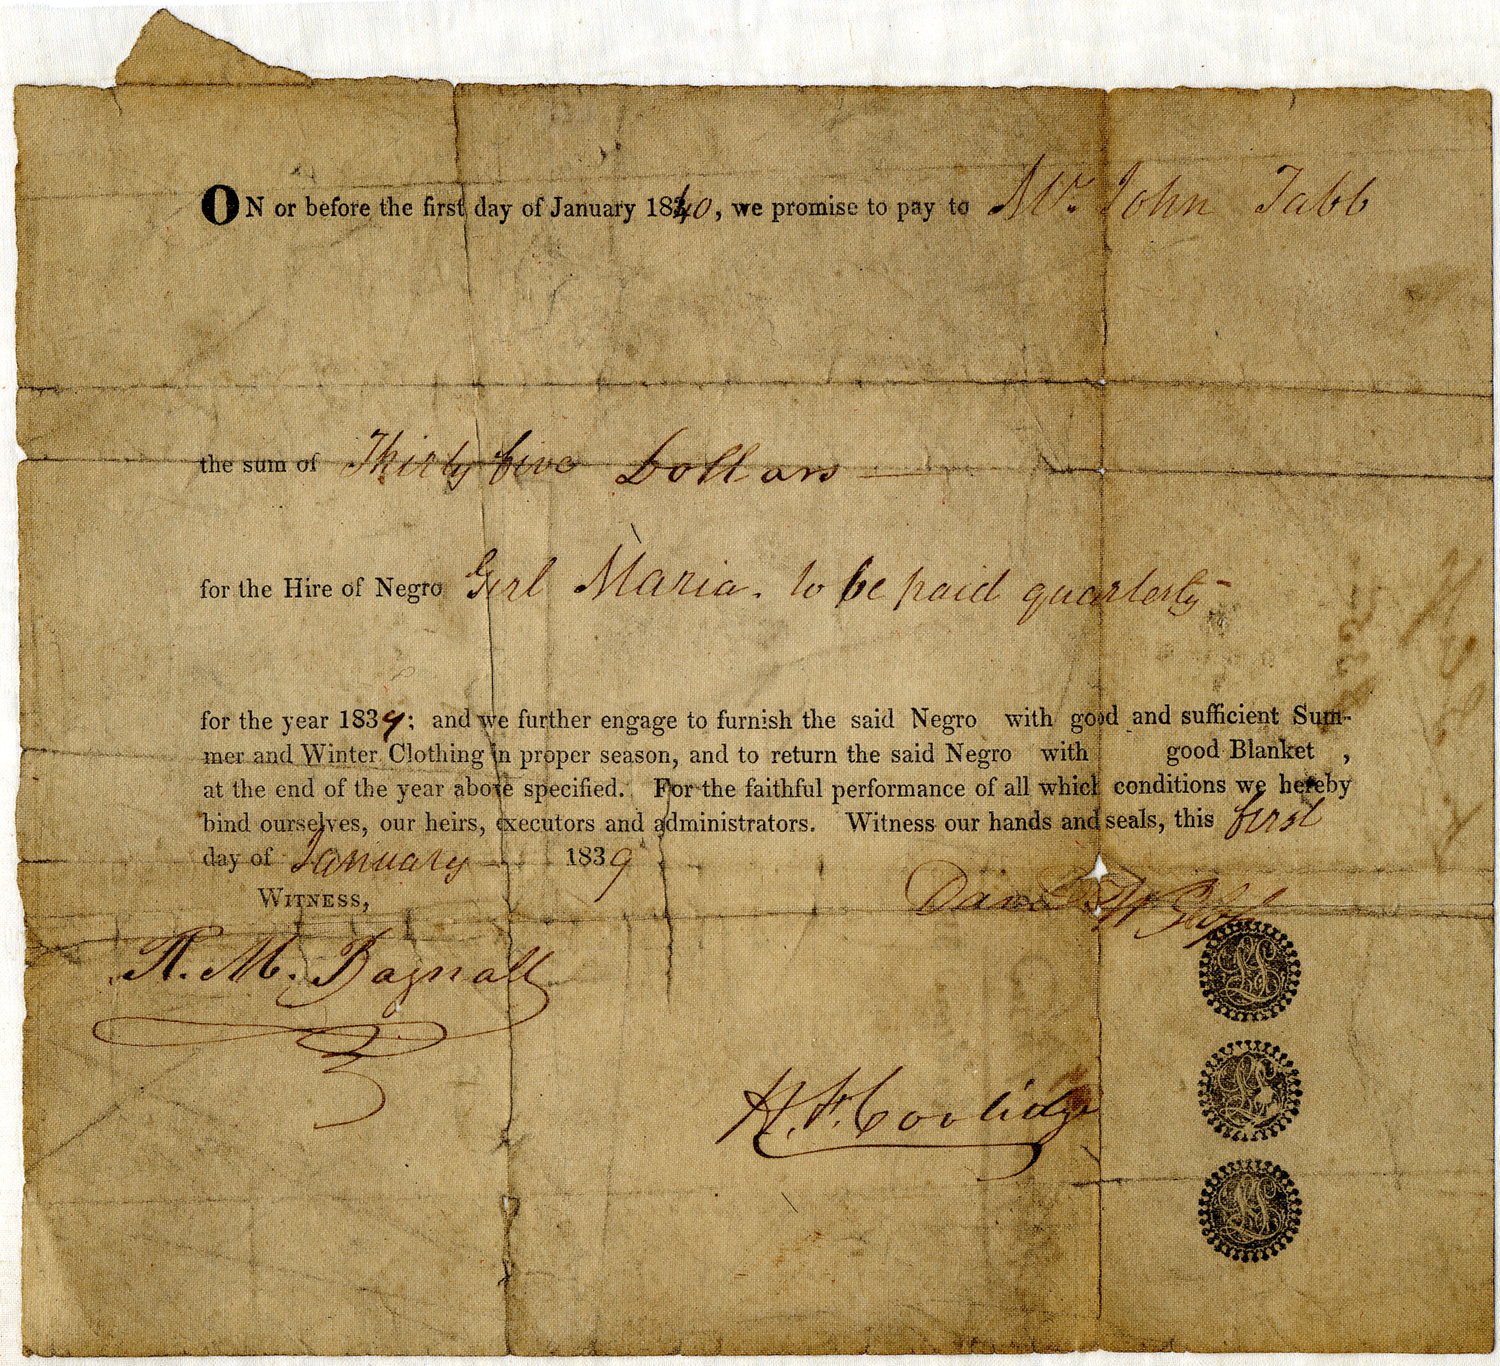 ON or before the first day of January 1840, we promise to pay to Mr. John Tabb
the sum of Thirty five Dollars
for the Hire of Negro Girl Maria. to be paid quarterly
for the year 1839; and we further engage to furnish the said Negro with good and sufficient Sum-
mer and Winter Clothing in proper season, and to return the said Negro with good Blanket ,
at the end of the year above specified. For the faithful performance of all which conditions we hereby
bind ourselves, our heirs, executors and administrators. Witness our hands and seals, this first
day of January 1839
WITNESS,
R. M. Bagnall
H. F. Coolidge
LS
LS
LS